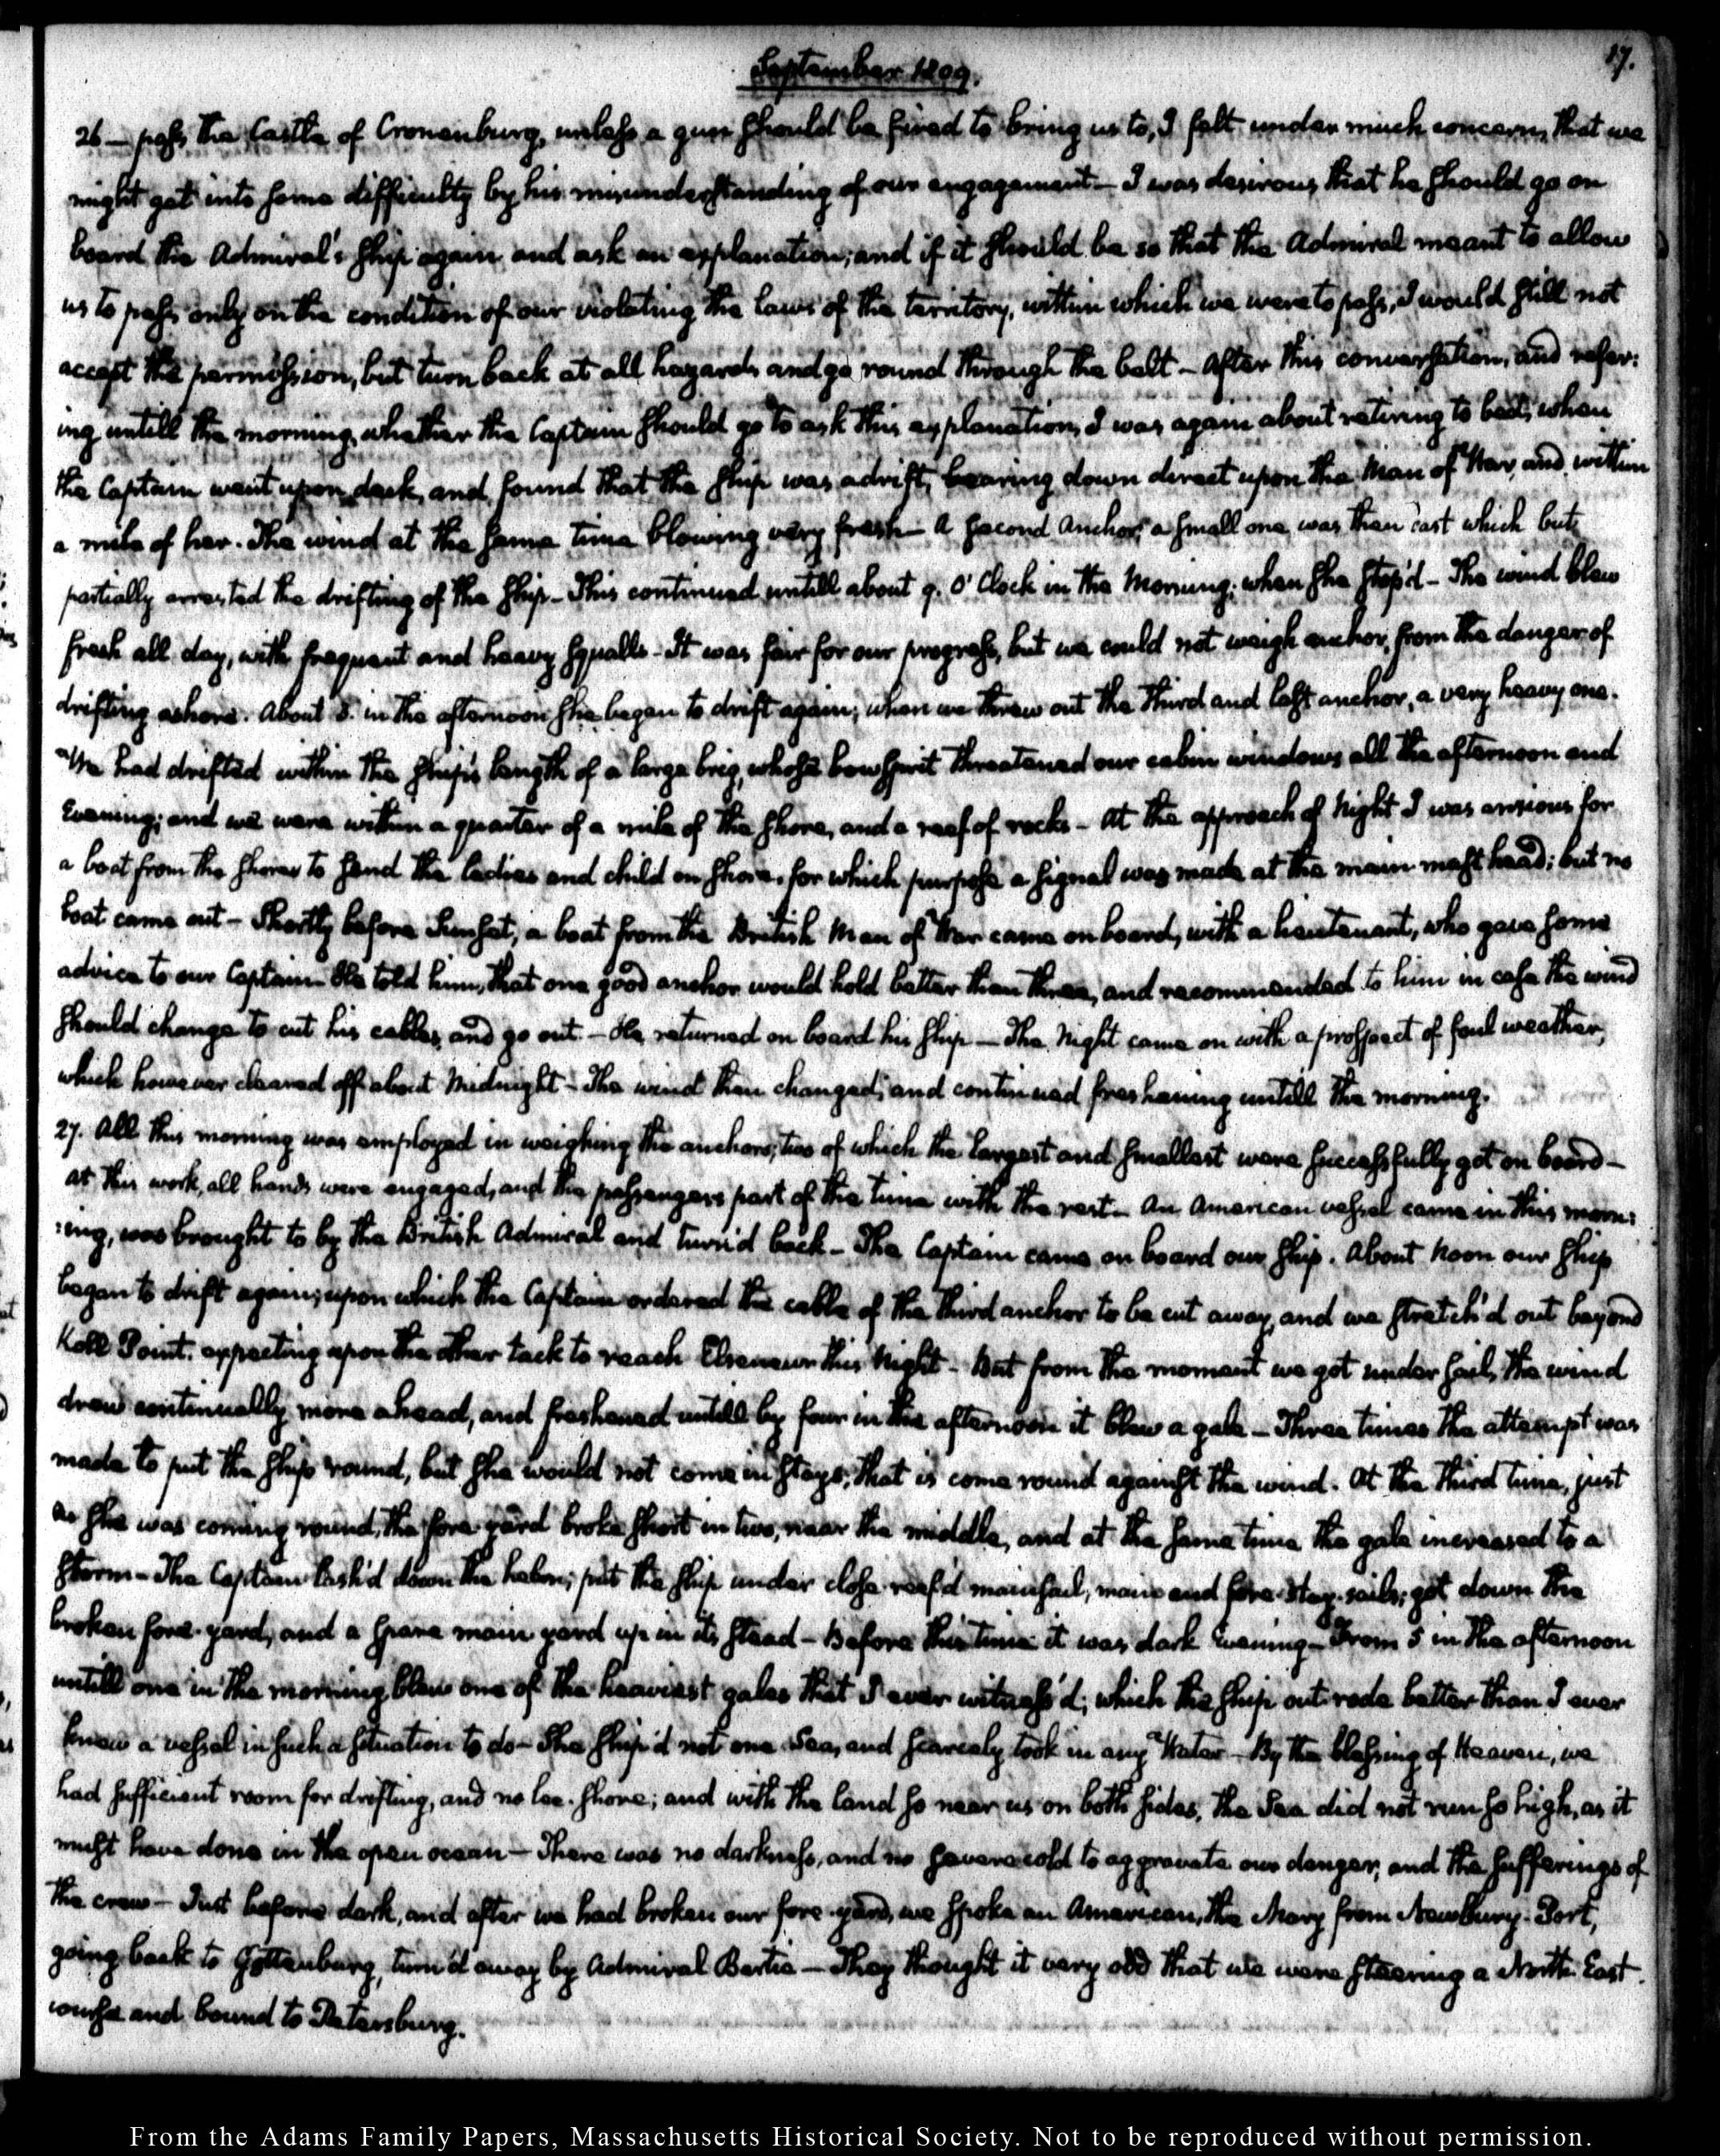 September 1809.
17.
26 — pass the Castle of Cronenburg, unless a gun should be fired to bring us to, I felt under much concern, that we
might get into some difficulty by his misunderstanding of our engagement — I was desirous that he should go on
board the Admiral's ship again and ask an explanation; and if it should be so that the Admiral meant to allow
us to pass only on the condition of our violating the laws of the territory, within which we were to pass, I would still not
accept the permission, but turn back at all hazards and go round through the belt — After this conversation, and refer:
ing untill the morning, whether the Captain should go to ask this explanation, I was again about retiring to bed, when
the Captain went upon deck, and found that the ship was adrift, bearing down direct upon the Man of War, and within
a mile of her. The wind at the same time blowing very fresh — A second anchor, a small one, was then cast which but
partially arrested the drifting of the ship — This continued untill about 9. O'Clock in the Morning; when she stop'd — The wind blew
fresh all day, with frequent and heavy squalls — It was fair for our progress, but we could not weigh anchor, from the danger of
drifting ashore. About 5. in the afternoon she began to drift again; when we threw out the third and last anchor, a very heavy one.
We had drifted within the ship's length of a large brig, whose bowsprit threatened our cabin windows all the afternoon and
Evening; and we were within a quarter of a mile of the shore, and a reef of rocks — At the approach of Night I was anxious for
a boat from the shore to send the ladies and child on shore, for which purpose a signal was made at the main mast head; but no
boat came out — Shortly before Sunset, a boat from the British Man of War came on board, with a lieutenant, who gave some
advice to our Captain — He told him, that one good anchor would hold better than three, and recommended to him in case the wind
should change to cut his cables, and go out. — He returned on board his ship — The Night came on with a prospect of foul weather,
which however cleared off about Midnight — The wind then changed, and continued freshening untill the morning.
27. All this morning was employed in weighing the anchors; two of which the largest and smallest were successfully got on board —
at this work, all hands were engaged, and the passengers part of the time with the rest — An American vessel came in this morn:
:ing, was brought to by the British Admiral and turn'd back — The Captain came on board our ship. About Noon our ship
began to drift again; upon which the Captain ordered the cable of the third anchor to be cut away, and we stretch'd out beyond
Koll Point. expecting upon the other tack to reach Elseneur this Night — But from the moment we got under sail, the wind
drew continually more ahead, and freshened untill by four in the afternoon it blew a gale — Three times the attempt was
made to put the ship round, but she would not come in stays; that is come round against the wind. At the third time, just
as she was coming round, the fore yard broke short in two, near the middle, and at the same time the gale increased to a
storm — The Captain lash'd down the helm; put the ship under close-reef'd mainsail, main and fore-stay-sails; got down the
broken fore-yard, and a spare main yard up in its stead — Before this time it was dark Evening — From 5 in the afternoon
untill one in the morning blew one of the heaviest gales that I ever witness'd; which the ship out-rode better than I ever
knew a vessel in such a situation to do — She ship'd not one Sea, and scarcely took in any Water — By the blessing of Heaven, we
had sufficient room for drifting, and no lee-shore; and with the land so near us on both sides, the Sea did not run so high, as it
must have done in the open ocean — There was no darkness, and no severe cold to aggravate our danger, and the sufferings of
the crew — Just before dark, and after we had broken our fore-yard, we spoke an American, the Mary from Newbury-Port,
going back to Gottenburg, turn'd away by Admiral Bertie — They thought it very odd that we were steering a North-East
course and bound to Petersburg.
From the Adams Family Papers, Massachusetts Historical Society. Not to be reproduced without permission.